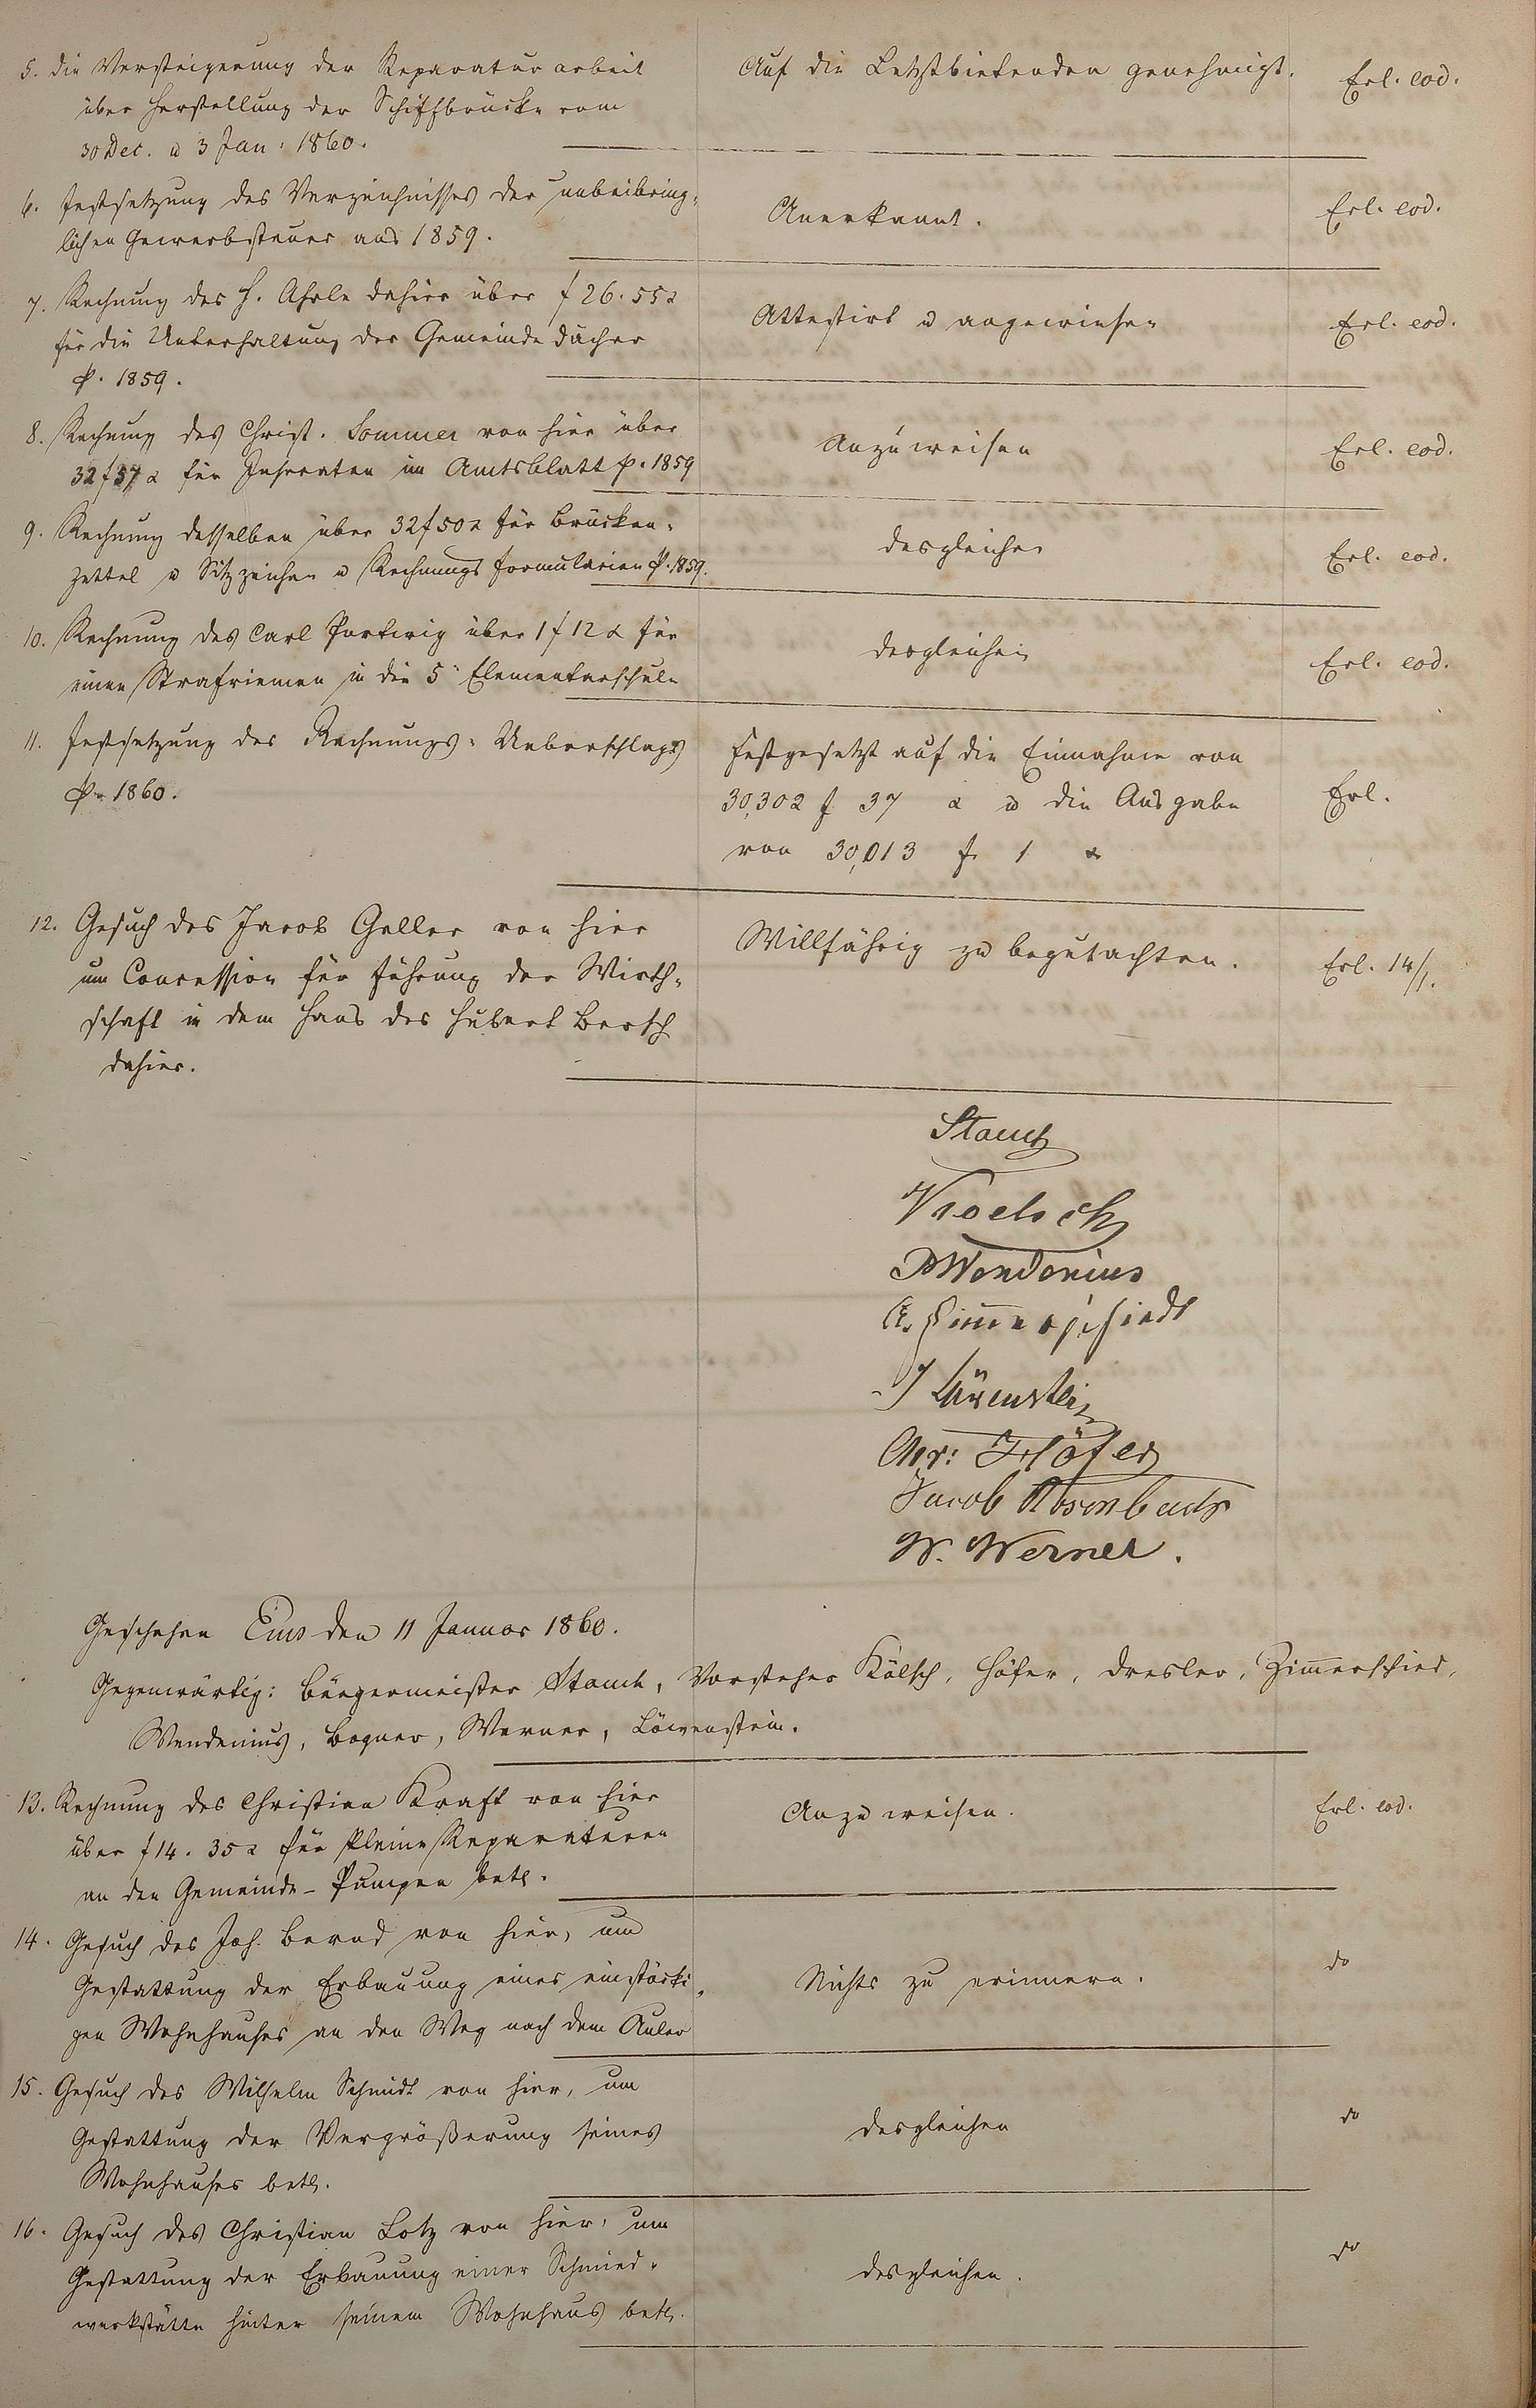 5. Die Versteigerung der Reparatur arbeit
über Herstellung der Schiffbrücke vom
30 Dec. u 3 Jan. 1860.
Auf die Letztbietenden genehmigt.
Erl. eod.
6. Festsetzung des Verzeichnisses der unbeibring-
lichen Gewerbsteuer aus 1859.
Anerkannt.
Erl. eod.
7. Rechnung des H. Ahrle dahier über f 26. 55 x
für die Unterhaltung der Gemeinde dächer
p. 1859.
Attestirt u angewiesen
Erl. eod.
8. Rechnung des Christ. Sommer von hier über
32 f 57 x für Inseraten im Amtsblatt p. 1859
Anzuweisen
Erl. eod.
9. Rechnung desselben über 32 f 50 x für Brücken-
zettel u Sitzzeichen u Rechnungs formularien p. 1859.
desgleichen
Erl. eod.
10. Rechnung des Carl über 1 f 12 x für
einen Strafriemen in die 5. Elementarschule
desgleichen
Erl. eod.
11. Festsetzung des Rechnungs-Ueberschlags
p. 1860.
Festgesetzt auf die Einnahme von
30,302 f 37 x u die Ausgabe
von 30,013 f 1 x
Erl.
12. Gesuch des Jacob Geller von hier
um Concession für Führung der Wirth-
schaft in dem Haus des Hubert Bersch
dahier.
Willfährig zu begutachten.
Erl. 14/1.
Stauch
Kroelsch
Wendenius
Zimmerschiedt
J Löwenstein
Chr: Höfer
Jacob
W. Werner.
Geschehen Ems den 11 Januar 1860.
Gegenwärtig: Bürgermeister Stauch, Vorsteher Kölsch, Höfer, Dresler, Zimmerschied,
Wendenius, Bogner, Werner, Löwenstein.
13. Rechnung des Christian Kraft von hier
über f 14. 35 x für kleine Reparaturen
an den Gemeinde-Pumpen betr.
Anzuweisen.
Erl. eod.
14. Gesuch des Joh. Bernd von hier, um
Gestattung der Erbauung eines einstöcki-
gen Wohnhauses an den Weg nach dem Auler
Nichts zu erinnern.
do
15. Gesuch des Wilhelm Schmidt von hier, um
Gestattung der Vergrößerung seines
Wohnhauses betr.
desgleichen
do
16. Gesuch des Christian Lotz von hier, um
Gestattung der Erbauung einer Schmied-
werkstätte hinter seinem Wohnhaus betr.
desgleichen.
do